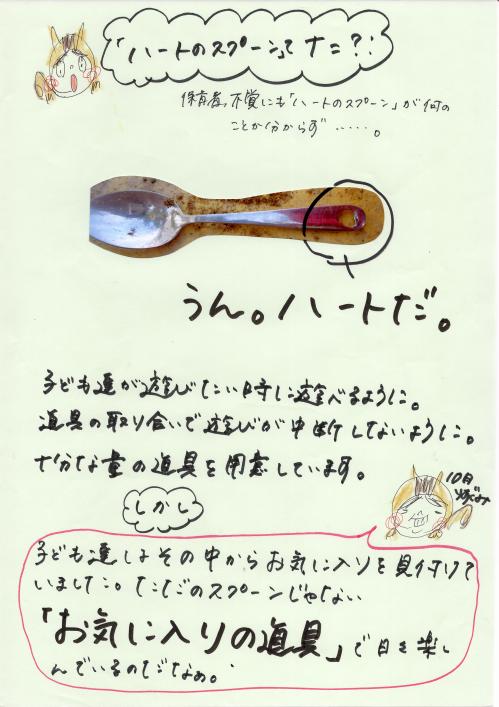 「ハートのスプーン」ってナニ?!
保育者、不覚にも「ハートのスプーン」が何の
ことか分からず……。
うん。ハートだ。
子ども達が遊びたい時に遊べるように。
道具の取り合いで遊びが中断しないように。
十分な量の道具を用意しています。
しかし
10日
子ども達はその中からお気に入りを見付けて
いました。ただのスプーンじゃない
「お気に入りの道具」で日々楽し
んでいるのだなぁ。